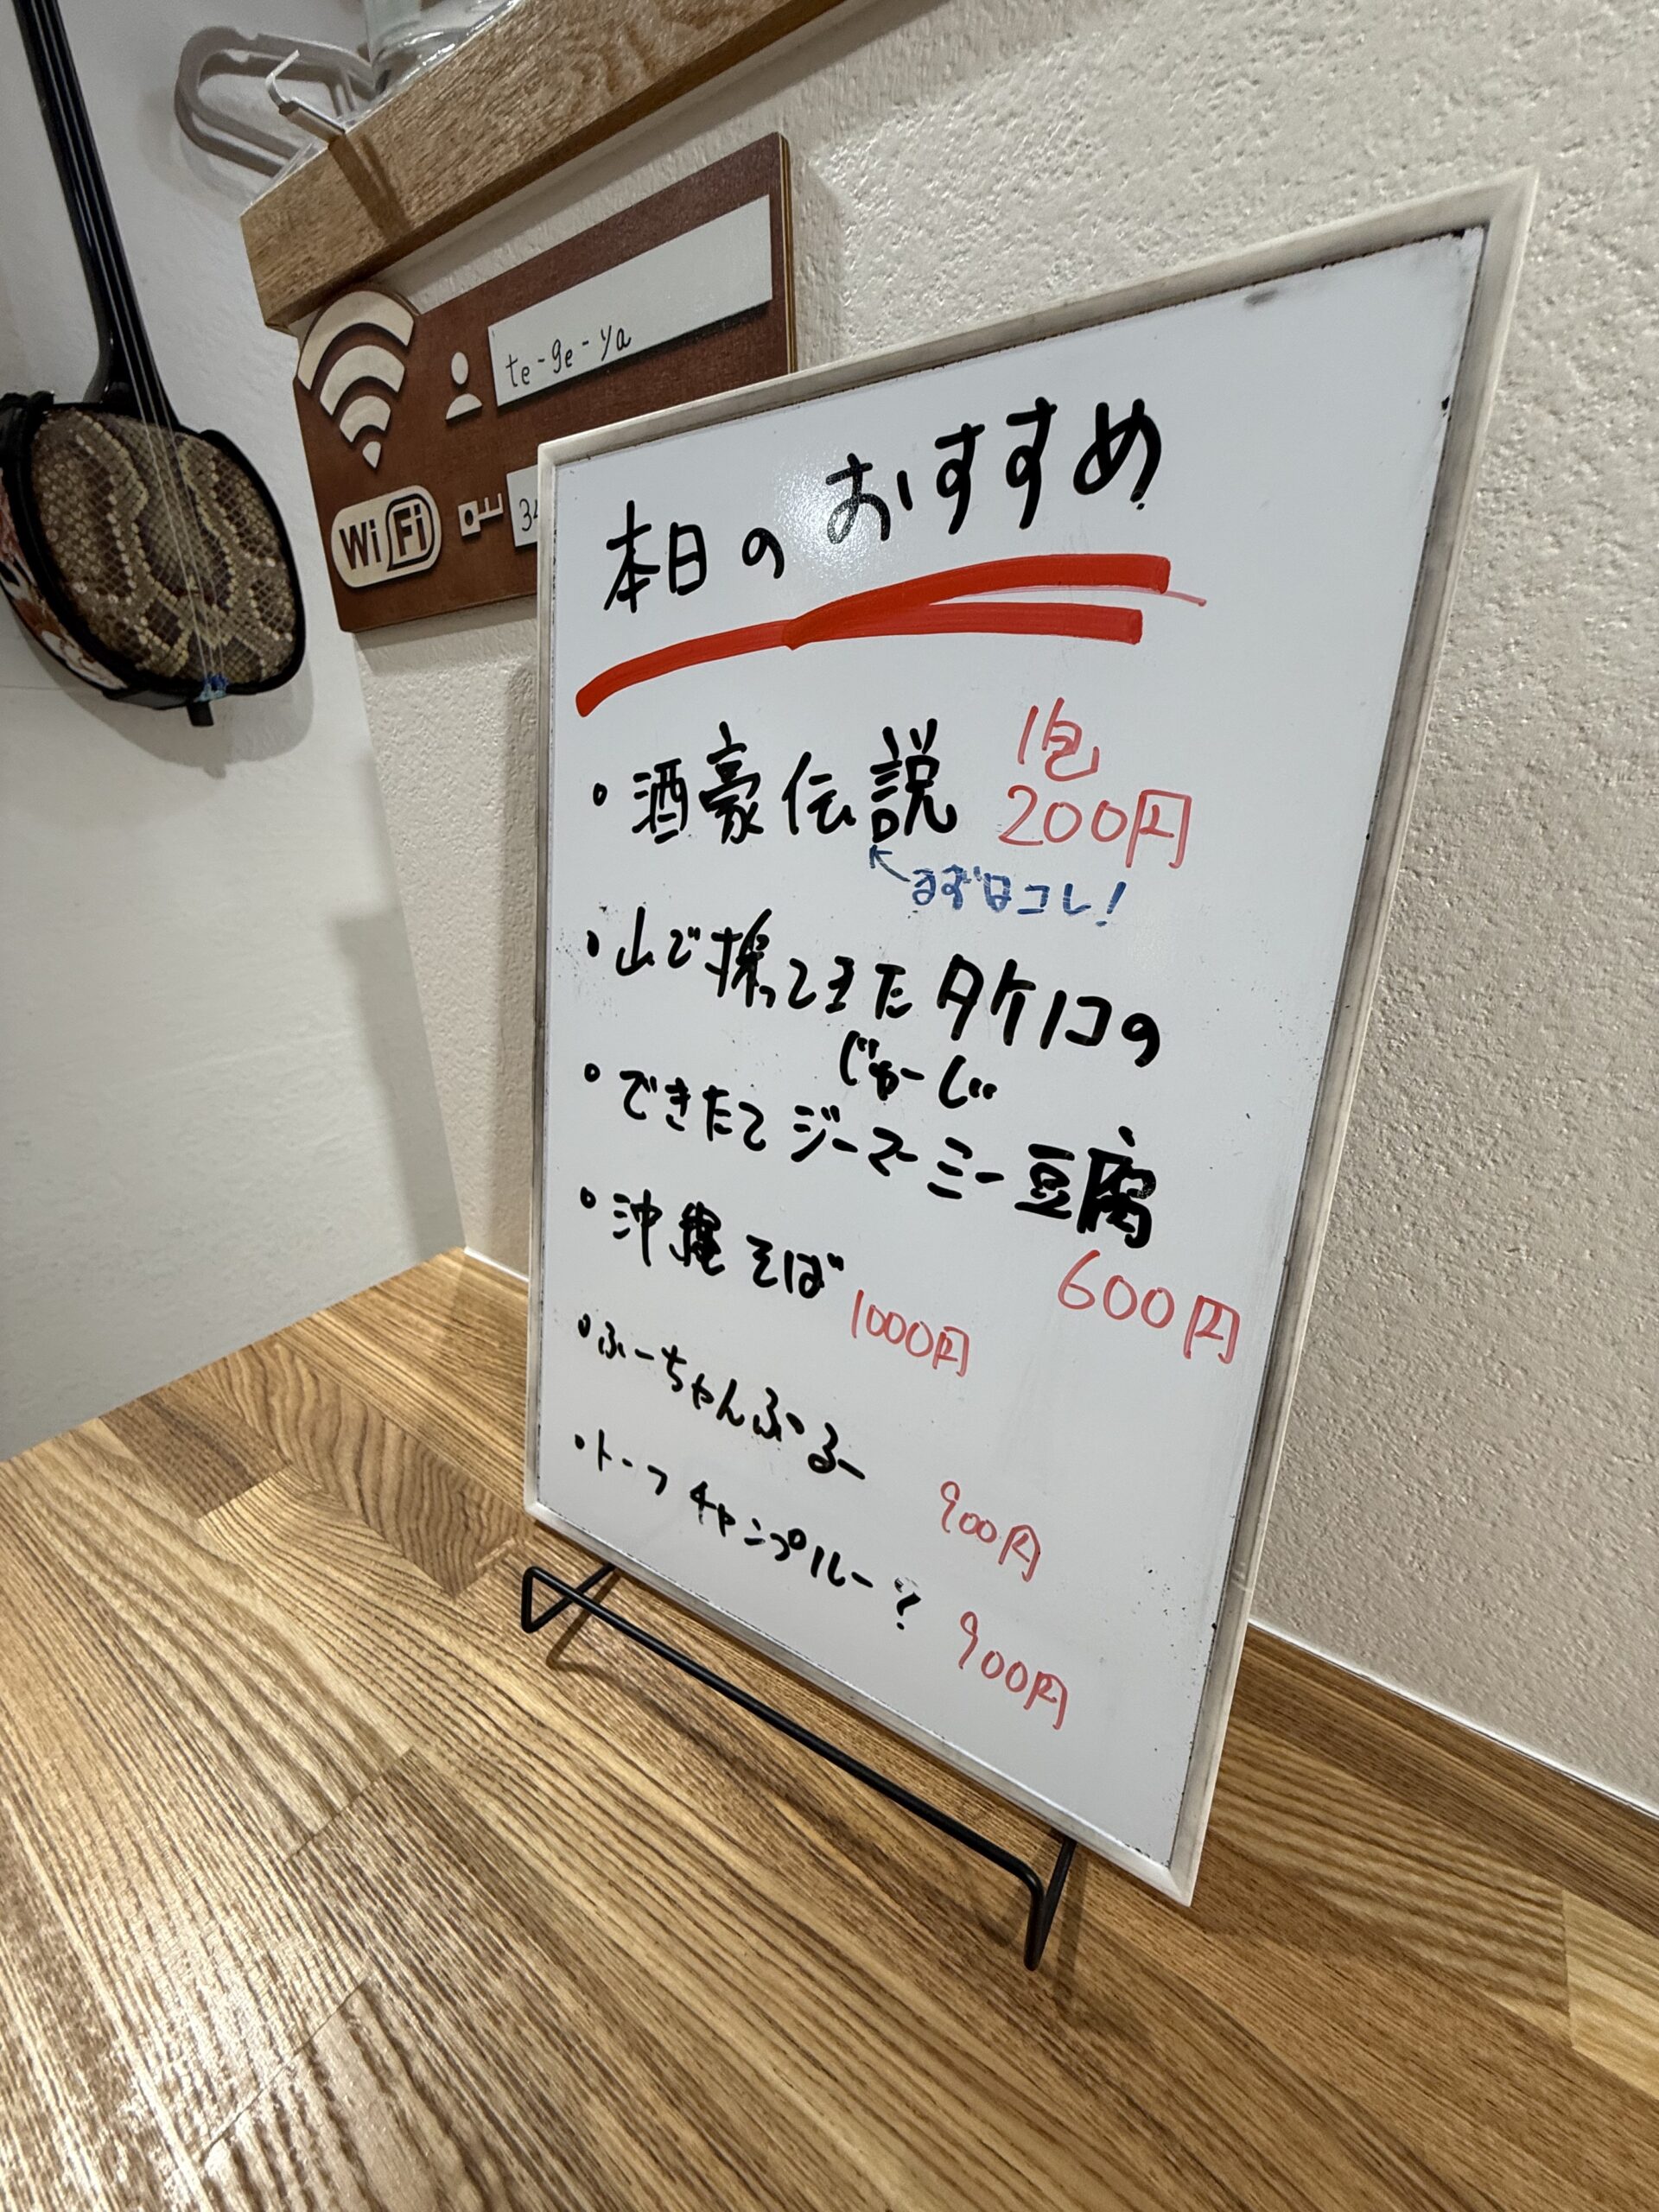 te-ge-ya
WiFi
34
本日のおすすめ
・酒豪伝説 1包 200円
まずはコレ!
・山で採ってきたタケノコの
じゅーじ
・できたてジーマーミー豆腐
600円
・沖縄そば 1000円
・ふーちゃんぷーるー 900円
・トーフチャンプルー? 900円